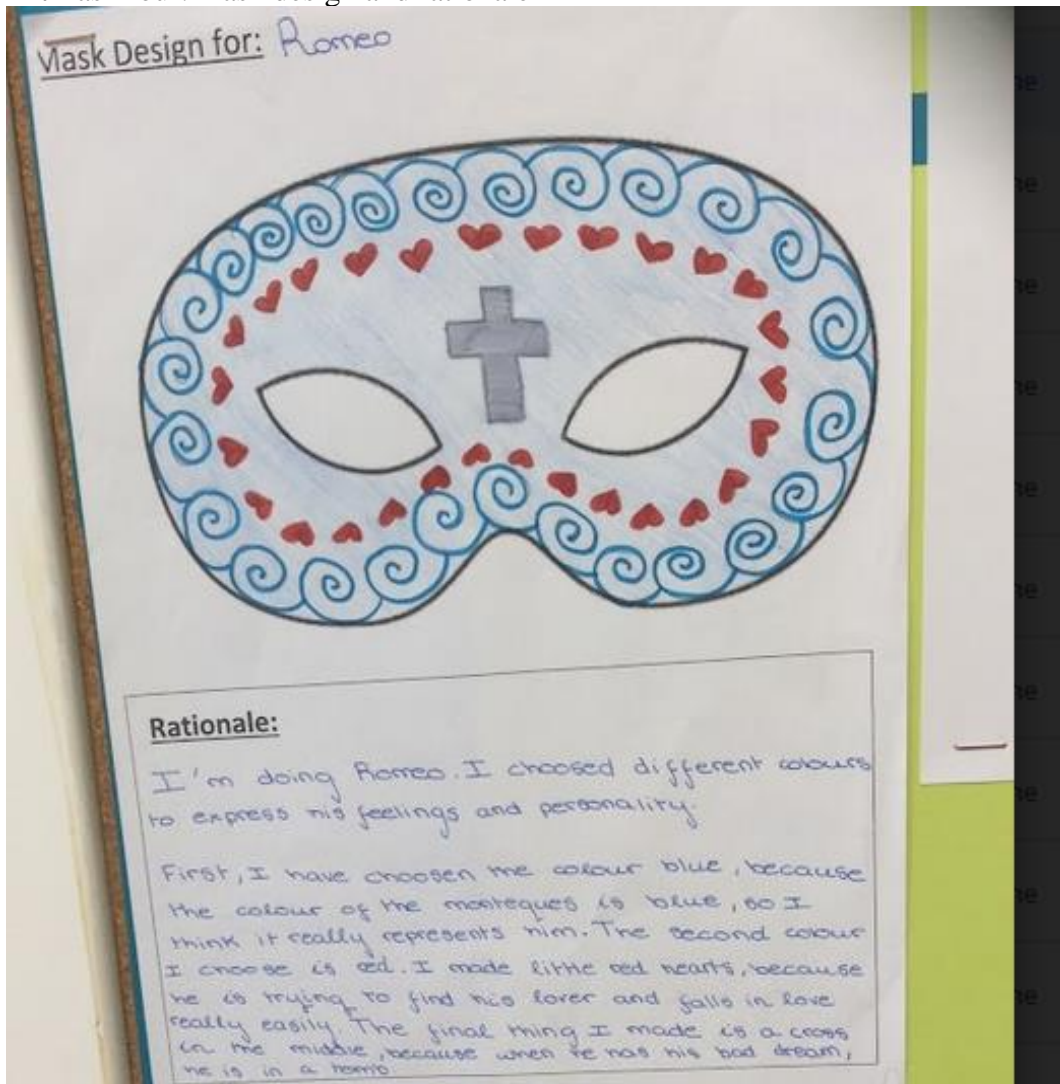 Mask Design for: Romeo
Rationale:
I'm doing Romeo. I choosed different colours
to express his feelings and personality.
First, I have choosen the colour blue, because
the colour of the monteques is blue, so I
think it really represents him. The second colour
I choose is red. I made little red hearts, because
he is trying to find his lover and falls in love
really easily. The final thing I made is a cross
in the middle, because when he has his bad dream,
he is in a